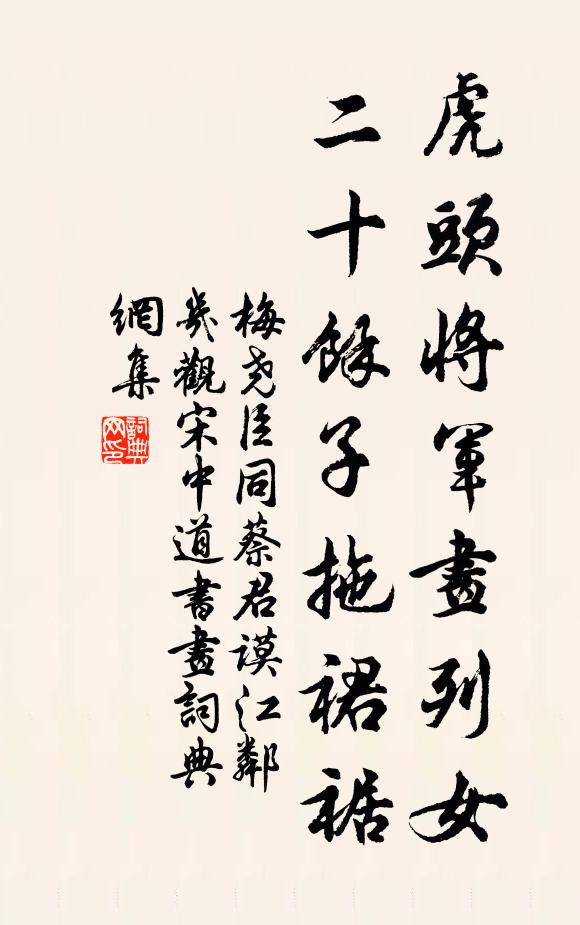 虎頭將軍畫列女
二十餘子拖裙裾
梅堯臣同蔡君謨江鄰
幾觀宋中道書畫詞典
網集
詞典
网印